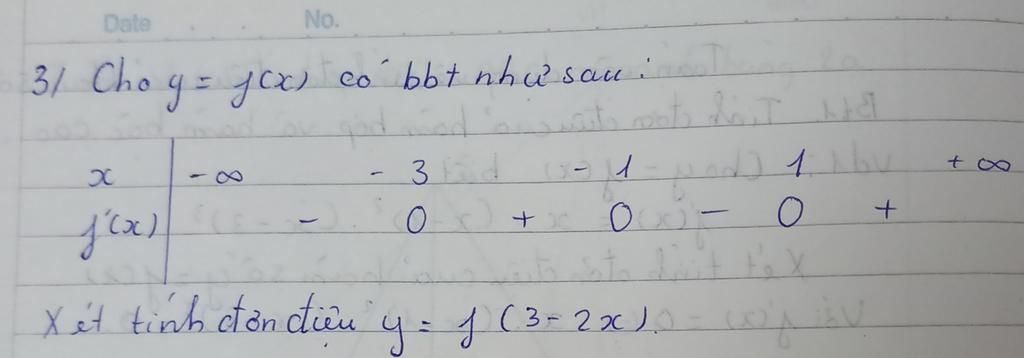 Date No.
3/ Cho y = f(x) có bbt như sau:
x -∞ -3 -1 1 +∞
f'(x) - 0 + 0 - 0 +
Xét tính đơn điệu y = f(3-2x).